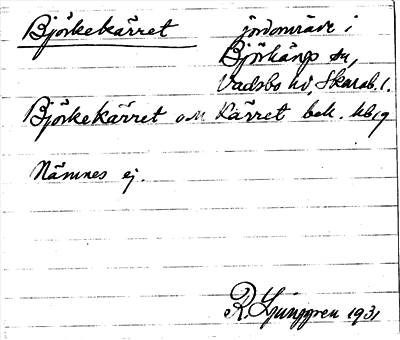 Björkekärret jordområde i
Björkängs sn,
Vadsbo hd, Skarab. l.
Björkekärret o. Kärret bek.
Nämnes ej.
R. Ljunggren 1931